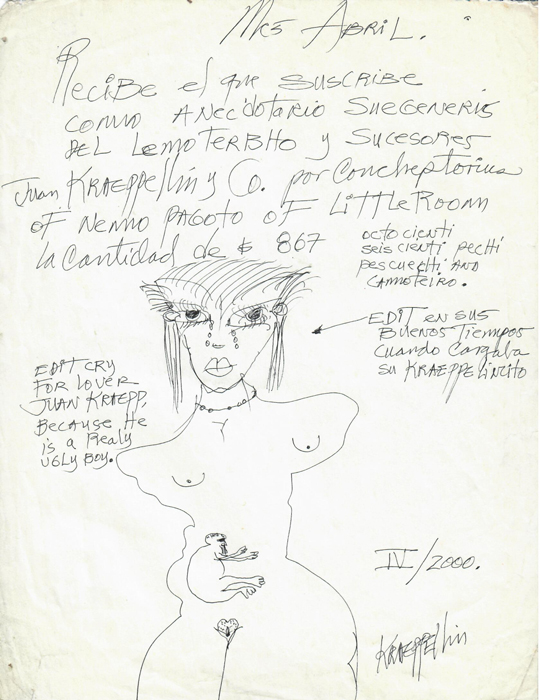 Mes ABRIL.
Recibe el que SUSCRIBE
como ANECDOTARIO SUEGENERIS
DEL LEMOTERBHO y SUCESORES
Juan KRAEPPELLIN y Co. por Concheptorius
OF NENNO PAGOTO OF LITTLE ROOM
la cantidad de $ 867
OCTO CIENTI
SEIS CIENTI PECHI
PESCUECHI ANO
CAMOTEIRO.
EDIT EN SUS
BUENOS TIEMPOS
CUANDO CARGABA
SU KRAEPPELINCITO
EDIT CRY
FOR LOVER
JUAN KRAEPP,
BECAUSE HE
is a REALY
UGLY BOY.
IV/2000.
KRAEPPELLIN